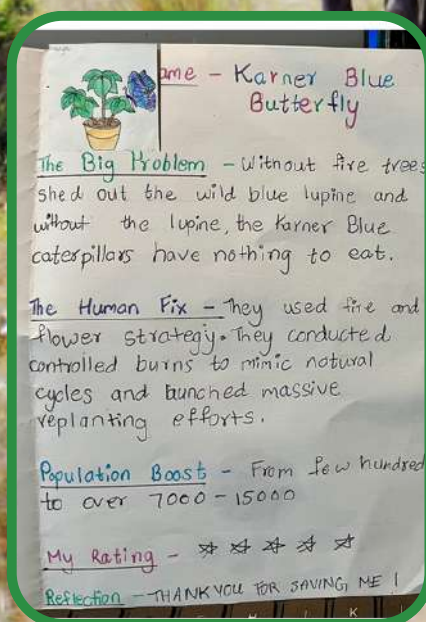 ame - Karner Blue
Butterfly
The Big Problem - Without fire trees
shed out the wild blue lupine and
without the lupine, the Karner Blue
caterpillars have nothing to eat.
The Human Fix - They used fire and
flower strategy. They conducted
controlled burns to mimic notural
cycles and launched massive
replanting efforts.
Population Boost - From few hundred
to over 7000 - 15000
My Rating - ☆ ☆ ☆ ☆ ☆
Reflection - THANK YOU FOR SAVING ME !
K